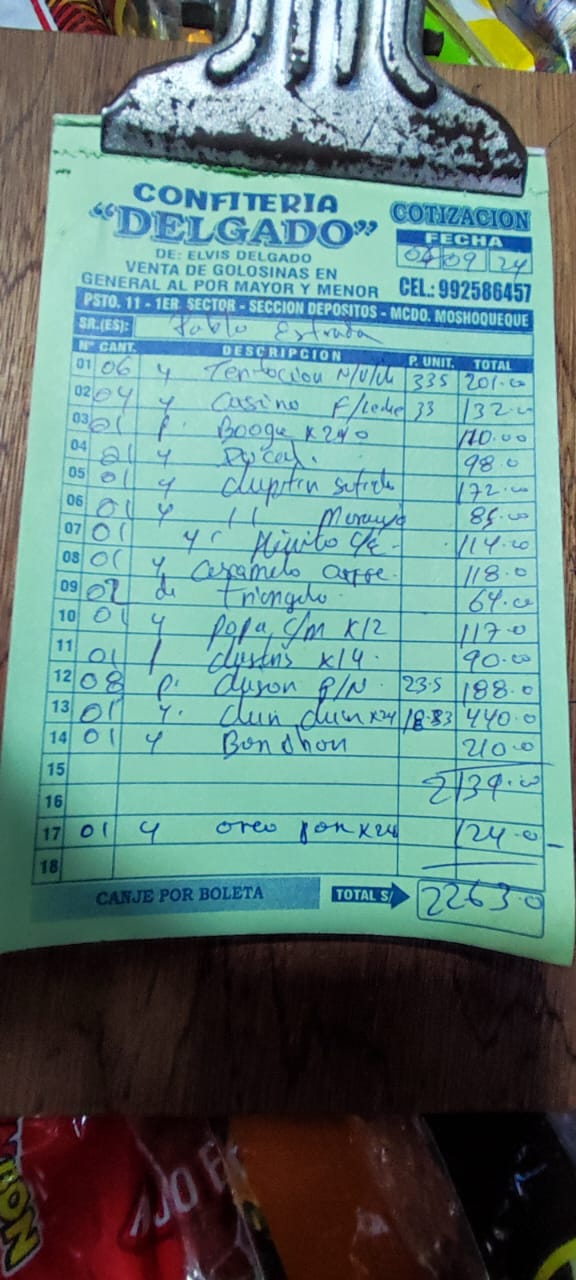 CONFITERIA
"DELGADO"
DE: ELVIS DELGADO
VENTA DE GOLOSINAS EN
GENERAL AL POR MAYOR Y MENOR
COTIZACION
FECHA
04 09 24
CEL.: 992586457
PSTO. 11 - 1ER. SECTOR - SECCION DEPOSITOS - MCDO. MOSHOQUEQUE
SR.(ES): Pablo Estrada
Nº CANT. DESCRIPCION P. UNIT. TOTAL
01 06 y Tentacion N/V/ch 335 201.00
02 04 y Casino F/Leche 33 132.00
03 01 p. Booga x240 110.00
04 01 y 98.0
05 01 y surtido 172.00
06 01 y 11 Maracuya 85.00
07 01 y c/c 114.00
08 01 y Caramelo 118.0
09 02 di triangulo 64.00
10 01 y popa c/m x12 117.0
11 01 p x14 90.00
12 08 p. P/N 23.5 188.0
13 01 y. Chin chin x24 18.33 440.0
14 01 y Bon dhon 210.0
15 2139.00
16
17 01 y oreo x24 124.0
18
CANJE POR BOLETA TOTAL S/ 2263.0